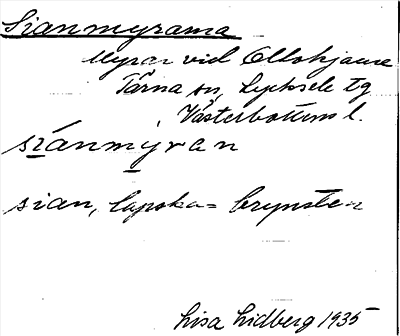 Sianmyrarna
Myrar vid Ollokjaure
Tärna sn, Lycksele tg
Västerbottens l.
siánmýran
sian, lapska = brynsten
Lisa Lidberg 1935